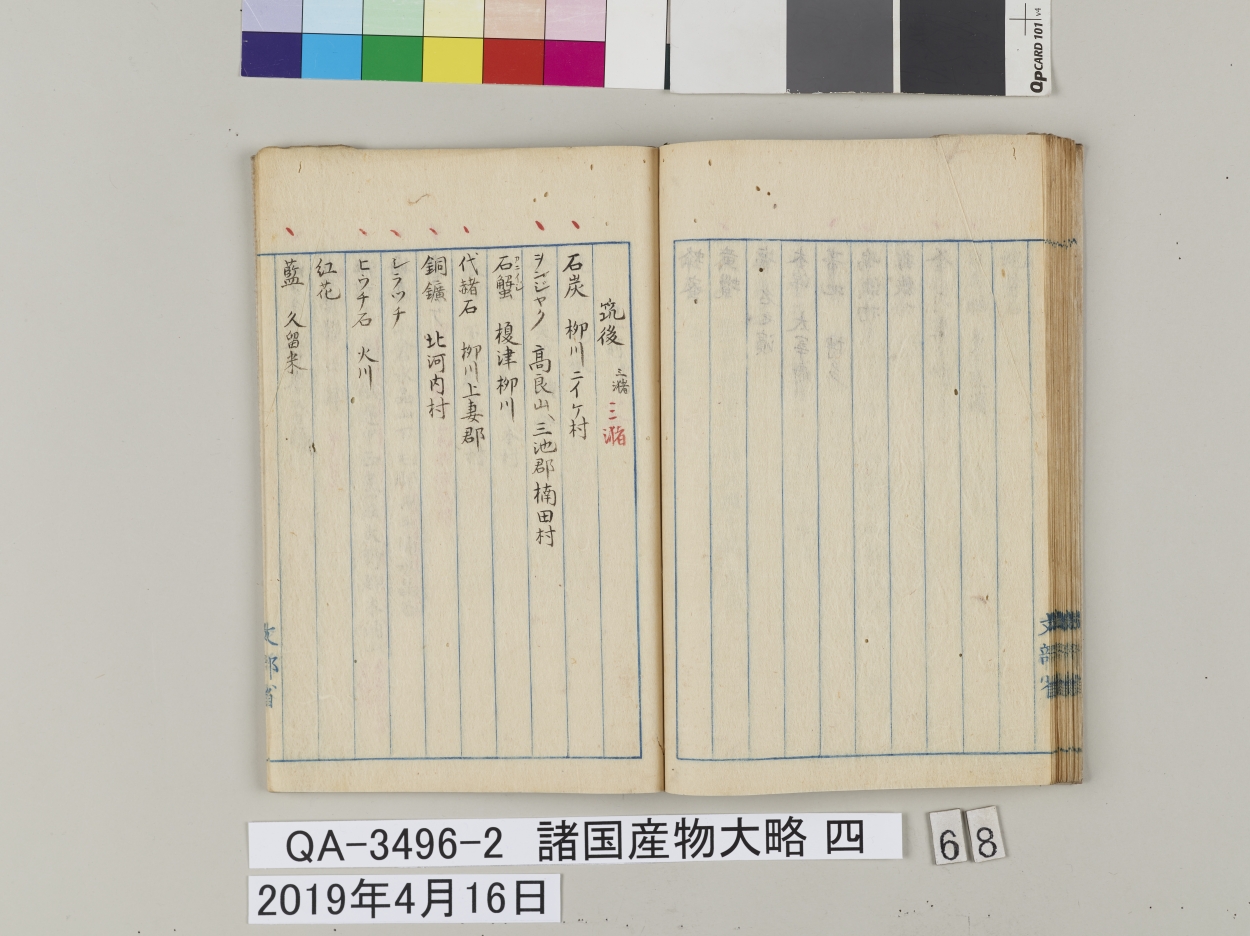 QPCARD 101 v4
筑後 三潴 三潴
石炭 柳川ニイケ村
ヲンジヤク 高良山、三池郡楠田村
石蟹 榎津柳川
代赭石 柳川上妻郡
銅鑛 北河内村
シラツチ
ヒウチ石 火川
紅花
藍 久留米
文部省
文部省
QA-3496-2 諸国産物大略 四
68
2019年4月16日